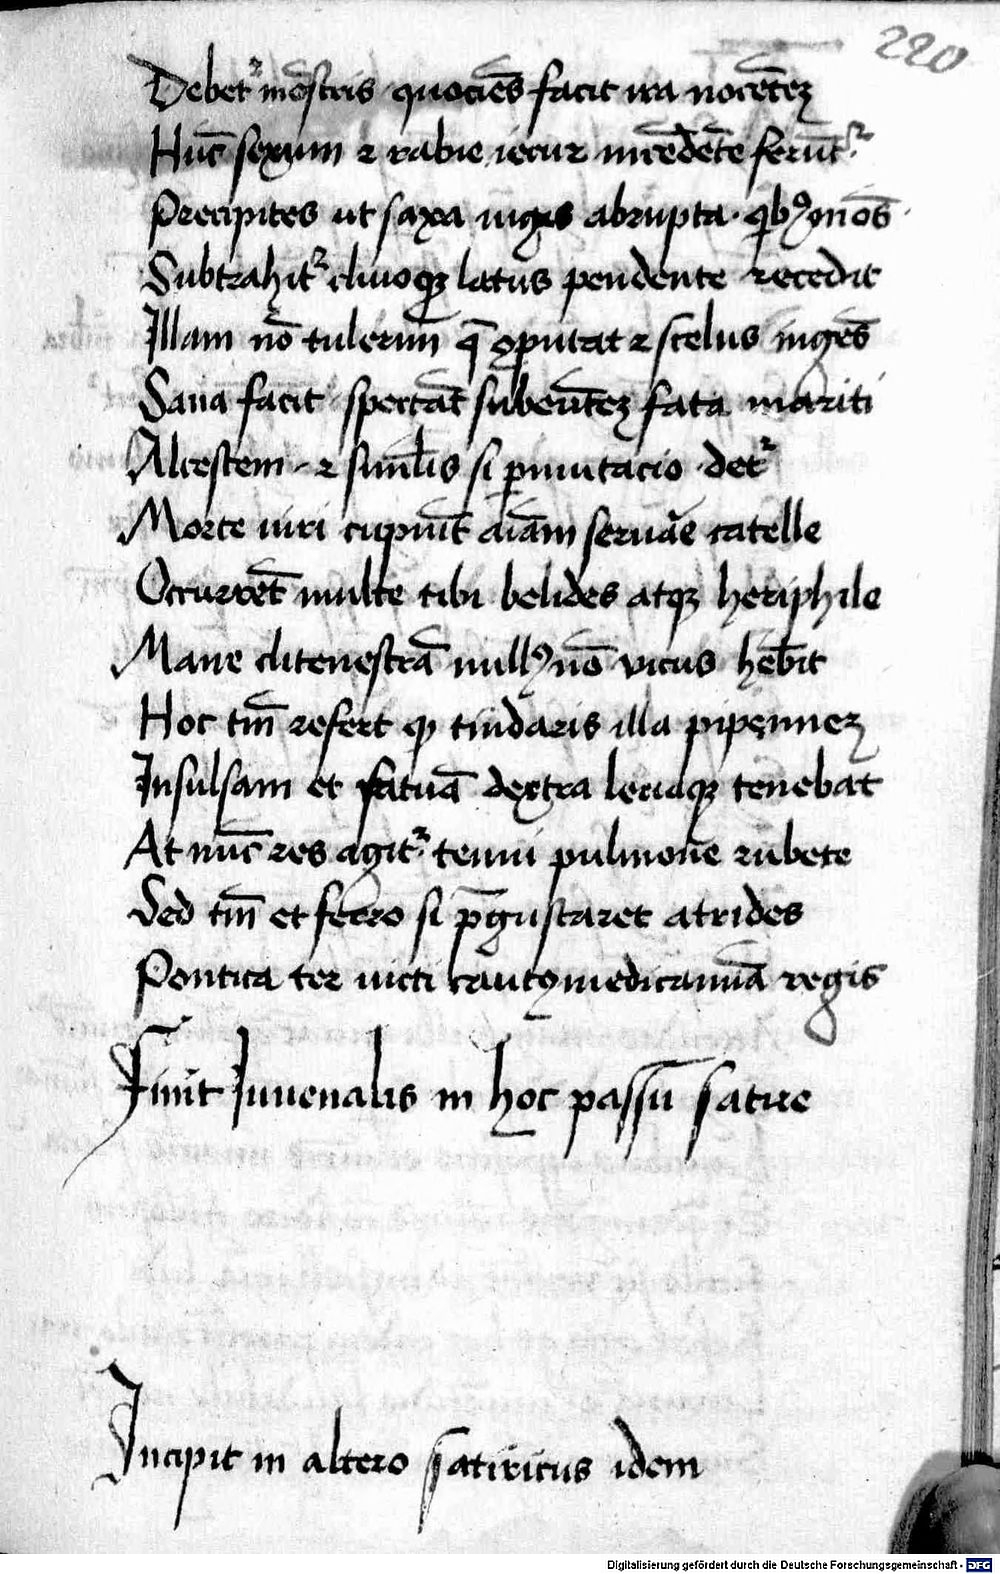 220
Debet᷑ mōstris quociēs facit ira nocēteꝫ
Hūc sexum ⁊ rabie iecur incēdēte ferūt᷑
Precipites ut saxa iugis abrupta · qͥbꝰ mōs
Subtrahit᷑ cliuoqꝫ latus pendente recedit
Illam nō tulerim q̄ ꝯputat ⁊ scelus ingēs
Sana facit spectāt subeūteꝫ fata mariti
Alcestem · ⁊ simłis si ꝑmutacio det᷑
Morte uiri cupiūt aīam seruāe catelle
Occurrēt multe tibi belides atqꝫ heriphile
Mane clitenestrā nullꝰ nō vicus hēbit
Hoc tm̄ refert ꝙ tindaris illa pipenneꝫ
Insulsam et fatuā dextra leuaqꝫ tenebat
At nūc res agit᷑ tenui pulmone rubete
Sed tm̄ et ferro si p̄gustaret atrides
Pontica ter uicti cautꝰ medicamīa regis
Finit Iuuenalis in hoc passū satire
Incipit in altero satiricus idem
Digitalisierung gefördert durch die Deutsche Forschungsgemeinschaft - DFG